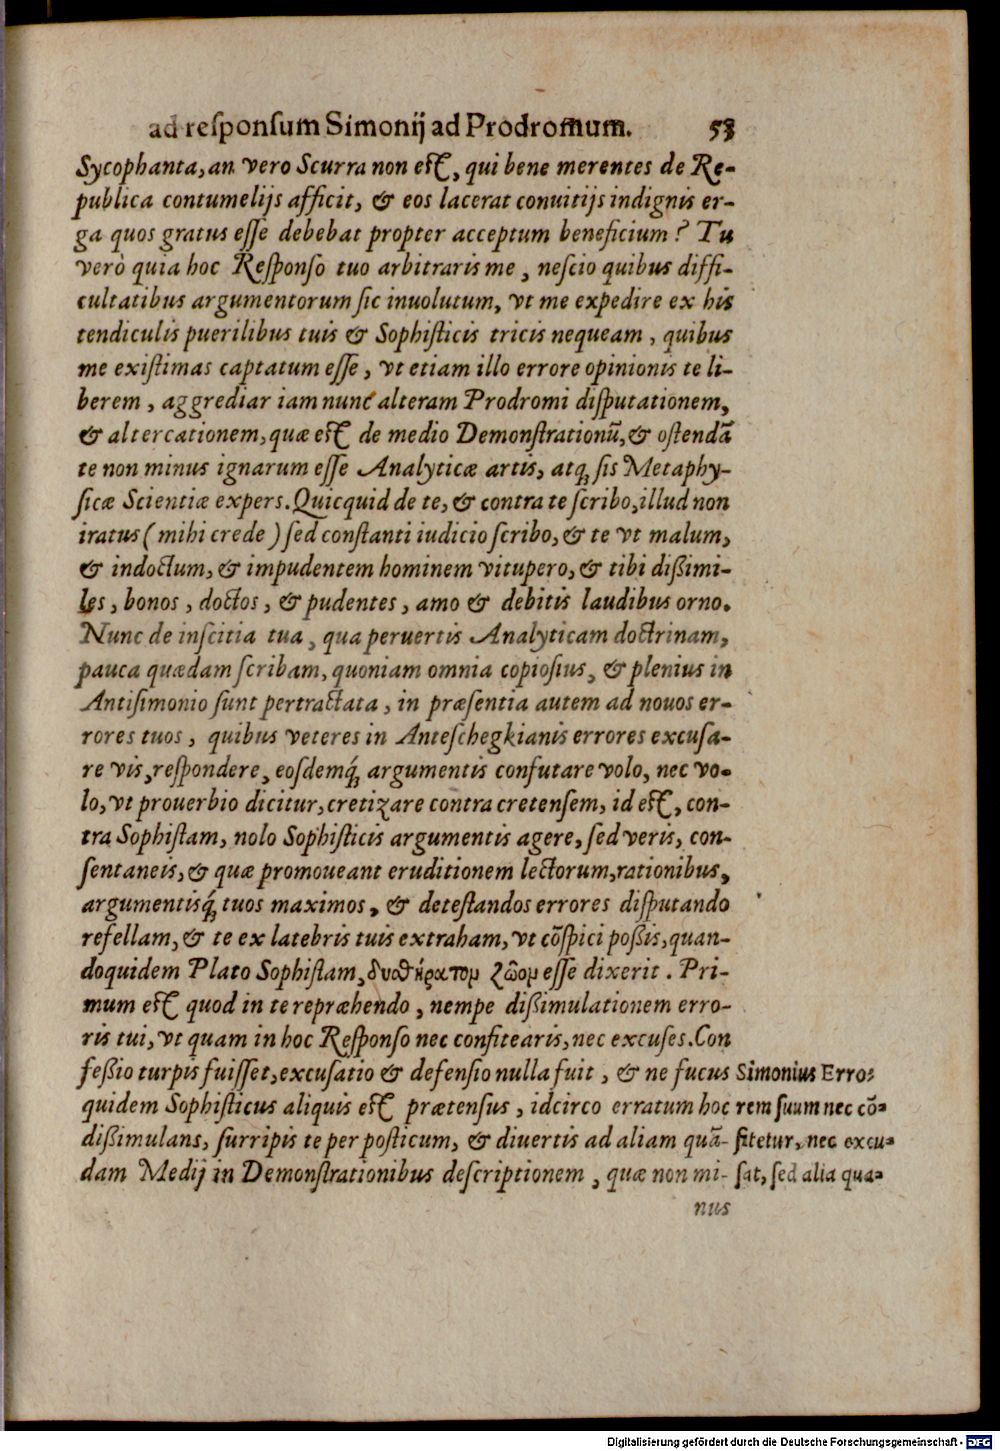 ad reſponſum Simonij ad Prodromum. 58
Sycophanta, an vero Scurra non eſt, qui bene merentes de Re-
publica contumelijs afficit, & eos lacerat conuitijs indignis er-
ga quos gratus eſſe debebat propter acceptum beneficium? Tu
verò quia hoc Reſponſo tuo arbitraris me, neſcio quibus diffi-
cultatibus argumentorum ſic inuolutum, vt me expedire ex his
tendiculis puerilibus tuis & Sophiſticis tricis nequeam, quibus
me exiſtimas captatum eſſe, vt etiam illo errore opinionis te li-
berem, aggrediar iam nunc alteram Prodromi diſputationem,
& altercationem, quæ eſt de medio Demonſtrationũ, & oſtendã
te non minus ignarum eſſe Analyticæ artis, atq; ſis Metaphy-
ſicæ Scientiæ expers. Quicquid de te, & contra te ſcribo, illud non
iratus (mihi crede) ſed conſtanti iudicio ſcribo, & te vt malum,
& indoctum, & impudentem hominem vitupero, & tibi dißimi-
les, bonos, doctos, & pudentes, amo & debitis laudibus orno.
Nunc de inſcitia tua, qua peruertis Analyticam doctrinam,
pauca quædam ſcribam, quoniam omnia copioſius, & plenius in
Antiſimonio ſunt pertractata, in præſentia autem ad nouos er-
rores tuos, quibus veteres in Anteſchegkianis errores excuſa-
re vis, reſpondere, eosdemq́; argumentis confutare volo, nec vo-
lo, vt prouerbio dicitur, cretizare contra cretenſem, id eſt, con-
tra Sophiſtam, nolo Sophiſticis argumentis agere, ſed veris, con-
ſentaneis, & quæ promoueant eruditionem lectorum, rationibus,
argumentisq́; tuos maximos, & deteſtandos errores diſputando
refellam, & te ex latebris tuis extraham, vt cõſpici poßis, quan-
doquidem Plato Sophiſtam, δυσθήρατομ ζῶομ eſſe dixerit. Pri-
mum eſt quod in te repræhendo, nempe dißimulationem erro-
ris tui, vt quam in hoc Reſponſo nec confitearis, nec excuſes. Con
feßio turpis fuiſſet, excuſatio & defenſio nulla fuit, & ne fucus
quidem Sophiſticus aliquis eſt prætenſus, idcirco erratum hoc
dißimulans, ſurripis te per poſticum, & diuertis ad aliam quã-
dam Medij in Demonſtrationibus deſcriptionem, quæ non mi-
nus
Simonius Erro-
rem ſuum nec cõ-
fitetur, nec excu-
ſat, ſed alia qua-
Digitalisierung gefördert durch die Deutsche Forschungsgemeinschaft - DFG